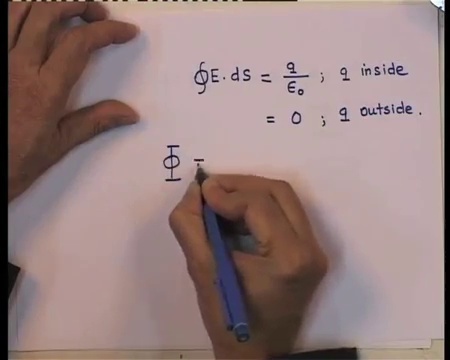 ∮E.ds = q/ε₀ ; q inside
= 0 ; q outside.
Φ =